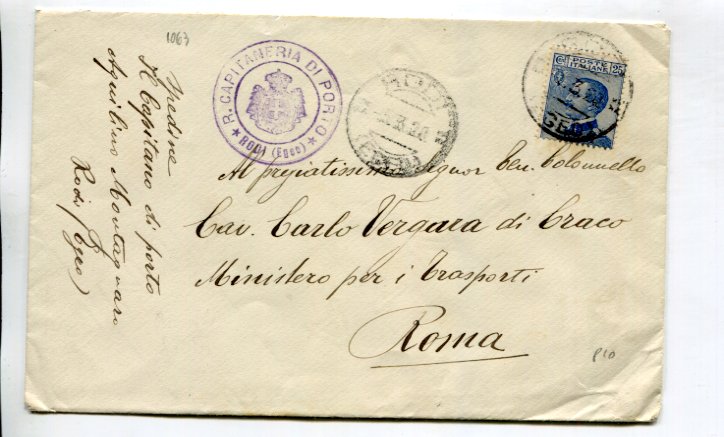 1063
Spedisce
Il Capitano di porto
Aquilino Montagnaro
Rodi (Egeo)
R. CAPITANERIA DI PORTO
RODI (Egeo)
POSTE ITALIANE
C. 25
Al pregiatissimo Signor Ten. Colonnello
Cav. Carlo Vergara di Craco
Ministero per i Trasporti
Roma